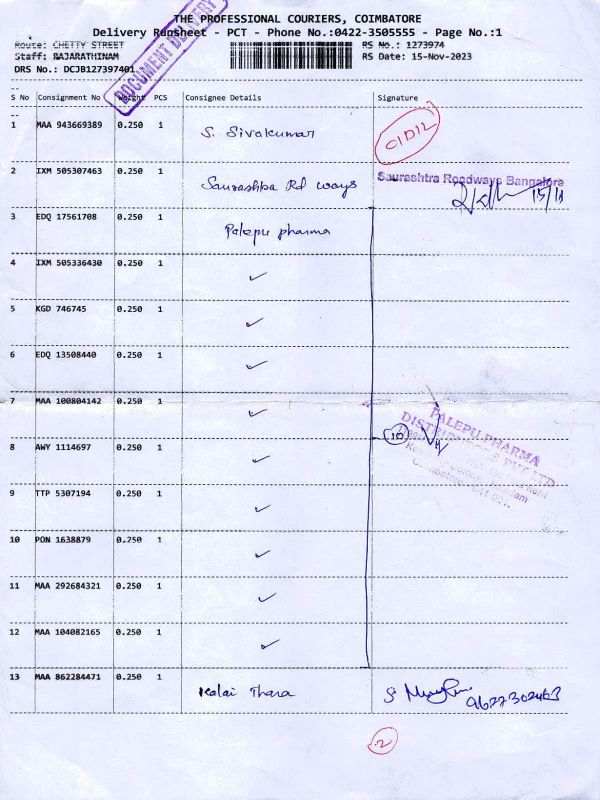 THE PROFESSIONAL COURIERS, COIMBATORE
Delivery Runsheet - PCT - Phone No.:0422-3505555 - Page No.:1
Route: CHETTY STREET
RS No.: 1273974
Staff: RAJARATHINAM
RS Date: 15-Nov-2023
DRS No.: DCJB127397401
DOCUMENT DELIVERY
S No Consignment No Weight PCS Consignee Details Signature
1 MAA 943669389 0.250 1 S. Sivakumar
2 IXM 505307463 0.250 1 Saurashtra Rd ways Saurashtra Roadways Bangalore
15/11
3 EDQ 17561708 0.250 1 Palepu pharma
4 IXM 505336430 0.250 1 ✓
5 KGD 746745 0.250 1 ✓
6 EDQ 13508440 0.250 1 ✓
7 MAA 100804142 0.250 1 ✓
PALEPU PHARMA
DISTRIBUTORS PVT LTD
10
8 AWY 1114697 0.250 1 ✓
9 TTP 5307194 0.250 1 ✓
10 PON 1638879 0.250 1 ✓
11 MAA 292684321 0.250 1 ✓
12 MAA 104082165 0.250 1 ✓
13 MAA 862284471 0.250 1 Kalai Thara
2